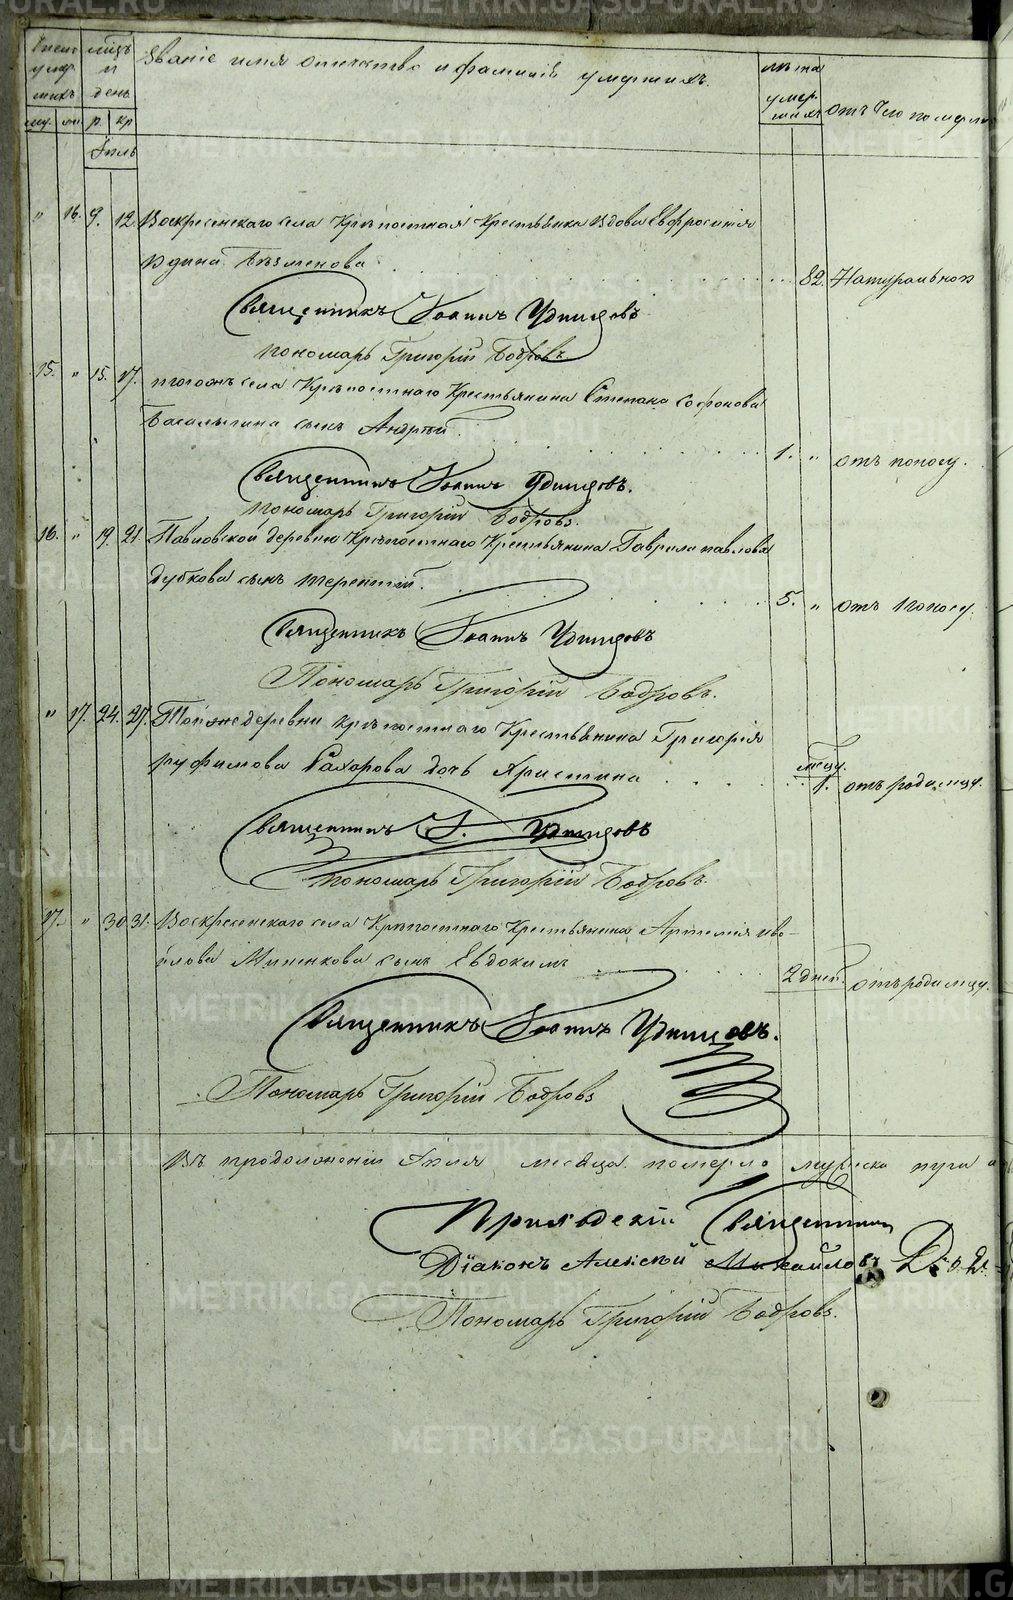 Число умершихъ
мѣсяцъ и день
Званіе имя отечество и фамилія умершихъ.
лѣта умершихъ
отъ чего померли
Іюль
" 16. 9. 12. Воскресенскаго села Крѣпостная Крестьянка Вдова Евфросинія
82. Натурально
Священникъ Іоаннъ Удинцовъ
пономарь Григорій Бодровъ
15. " 15. 17. тогожъ села Крѣпостнаго Крестьянина Степана Софонова
сынъ Андрей.
1. " отъ поносу.
Священникъ Іоаннъ Удинцовъ.
пономарь Григорій Бодровъ.
16. " 19. 21. Павловской деревни Крѣпостнаго Крестьянина Гаврила павлова
дубкова сынъ терентій.
5. " отъ поносу.
Священникъ Іоаннъ Удинцовъ
Пономарь Григорій Бодровъ.
" 17. 24. 27. Той же деревни крѣпостнаго Крестьянина Григорія
руфимова Захарова дочь Христина
1. отъ родимцу.
Священникъ І. Удинцовъ
Пономарь Григорій Бодровъ.
17. " 30 31. Воскресенскаго села Крѣпостнаго Крестьянина Артемія
Миненкова сынъ Евдокимъ
2 дней. отъ родимцу.
Священникъ Іоаннъ Удинцовъ.
Пономарь Григорій Бодровъ
Въ продолженіи Іюля месяца померло мужеска пула
Приходскій Священникъ
Діаконъ Алексѣй Михайловъ
Пономарь Григорій Бодровъ.
METRIKI.GASO-URAL.RU